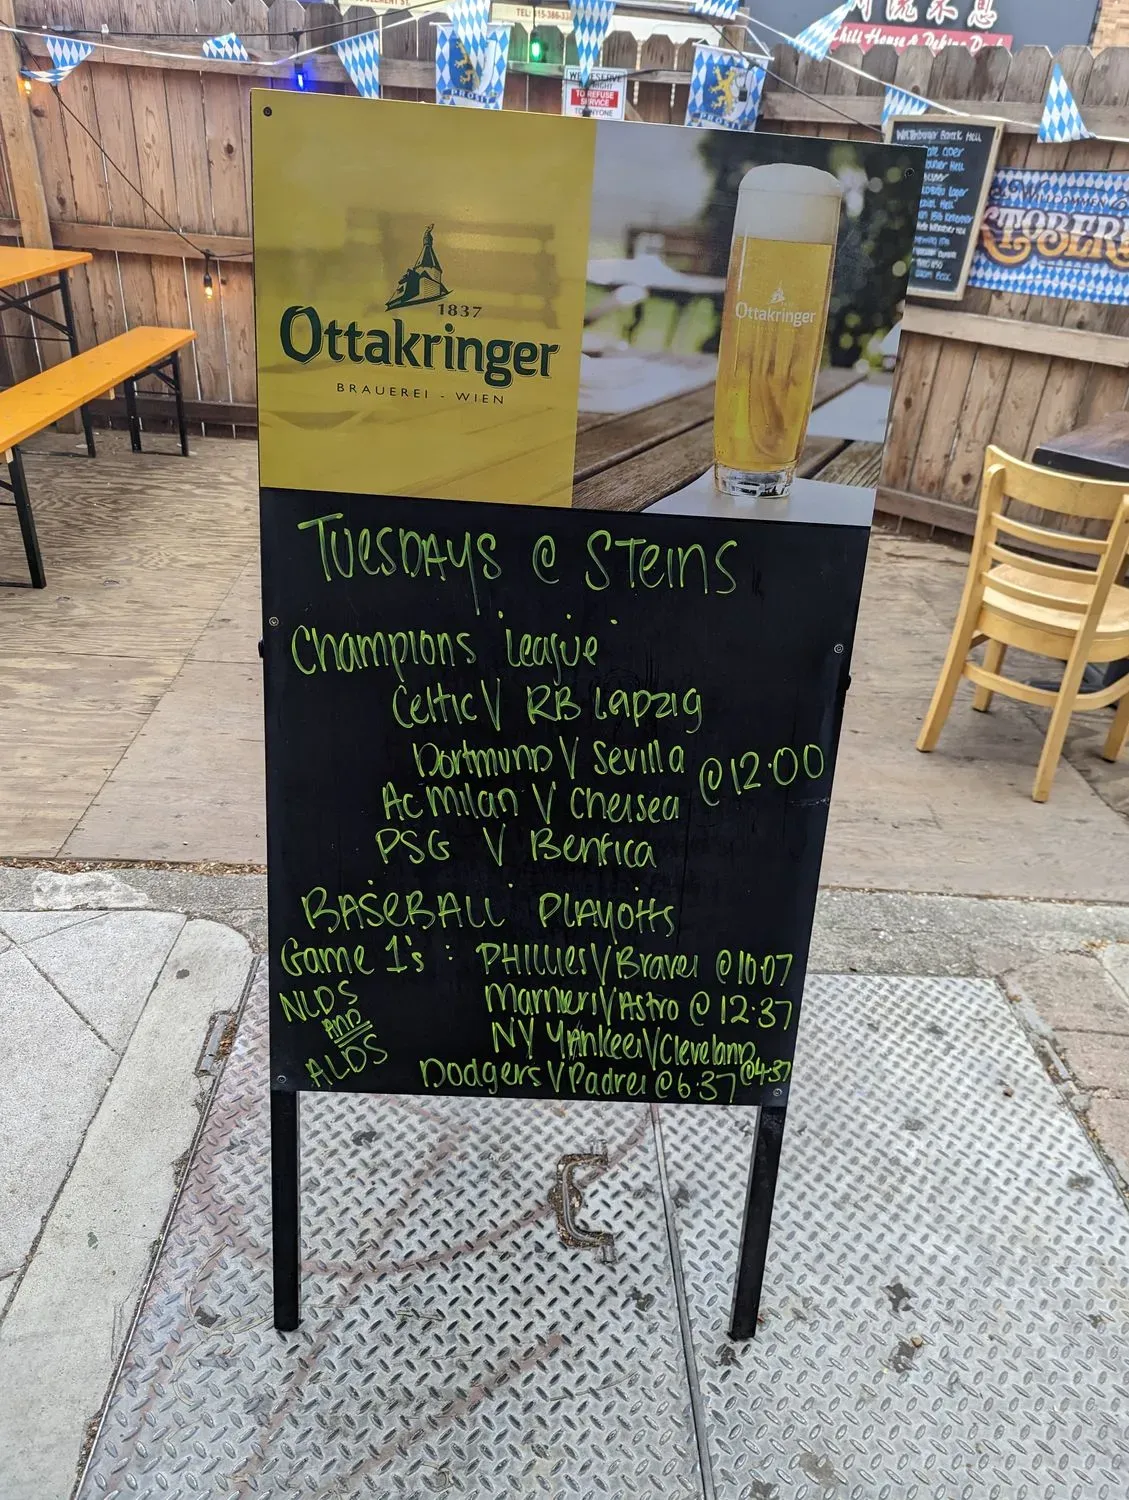 WE RESERVE
RIGHT
TO REFUSE
SERVICE
TO ANYONE
PROSIT
PROSIT
WILLKOMMEN
1837
Ottakringer
BRAUEREI - WIEN
Ottakringer
TUESDAYS @ STEINS
Champions League
Celtic V RB Leipzig
Dortmund V Sevilla @ 12:00
AC Milan V Chelsea
PSG V Benfica
BASEBALL PLAYOFFS
Game 1's : PHILLIES V Braves @ 10:07
NLDS Mariners V Astro @ 12:37
AND NY Yankees V Cleveland @ 4:37
ALDS Dodgers V Padres @ 6:37